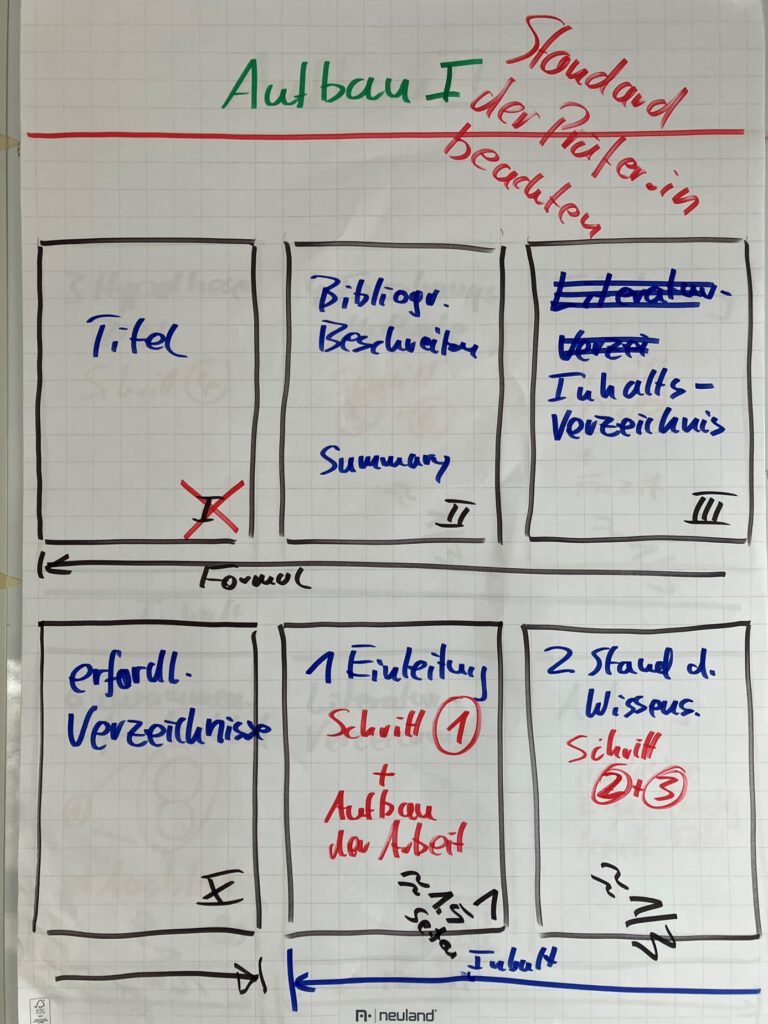 Aufbau I
Standard
der Prüfer.in
beachten
Titel
I
Bibliogr.
Beschreibu
Summary
II
Literatur-
Verzei
Inhalts-
Verzeichnis
III
Formal
erfordl.
Verzeichnisse
X
1 Einleitung
Schritt 1
+
Aufbau
der Arbeit
≈ 1.5
Seiten
1
2 Stand d.
Wissens.
Schritt
2+3
≈ 1/3
Inhalt
neuland